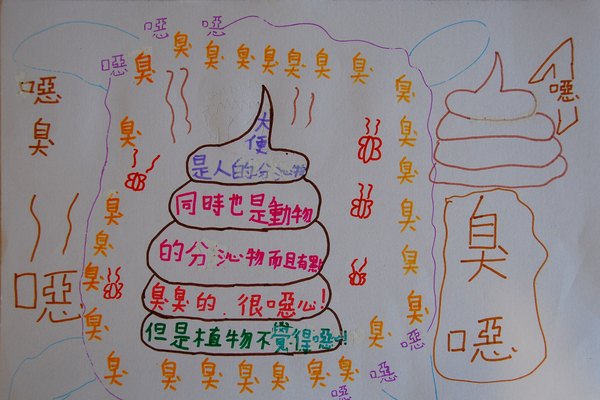 噁 噁
噁 臭 臭 臭 臭 臭 臭 臭 臭 臭
噁
臭
噁
臭
臭
臭
臭
臭
大
便
是人的分沁物
同時也是動物
的分沁物而且有點
臭臭的,很噁心!
但是植物不覺得噁心!
臭
臭
臭
臭
臭
臭
臭
臭 臭 臭 臭 臭 臭 臭
噁
噁
噁
噁
臭
噁